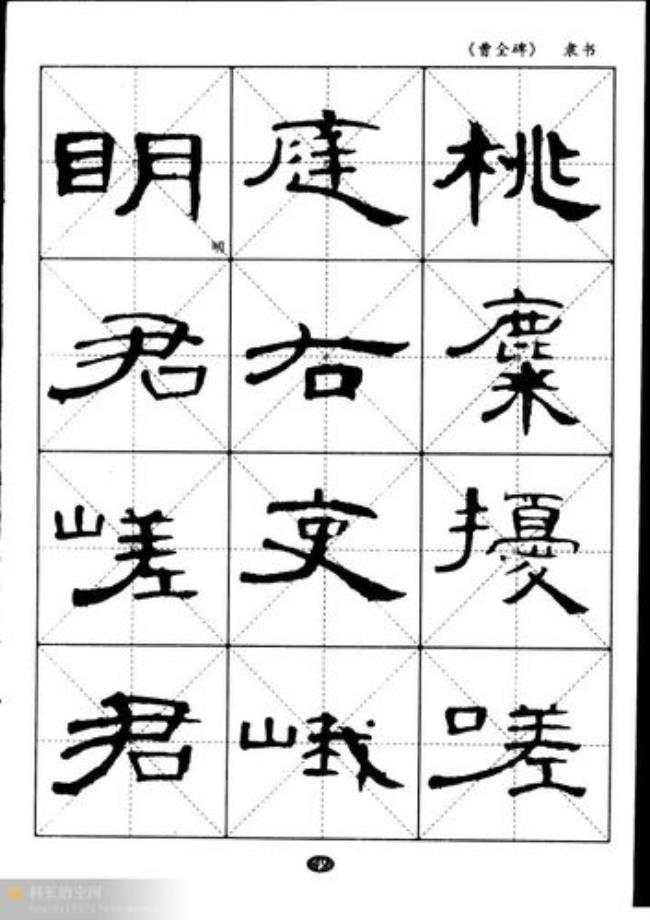 《曹全碑》 隶书
桃麋擾嗟
庭右吏峨
明君嵯君
明